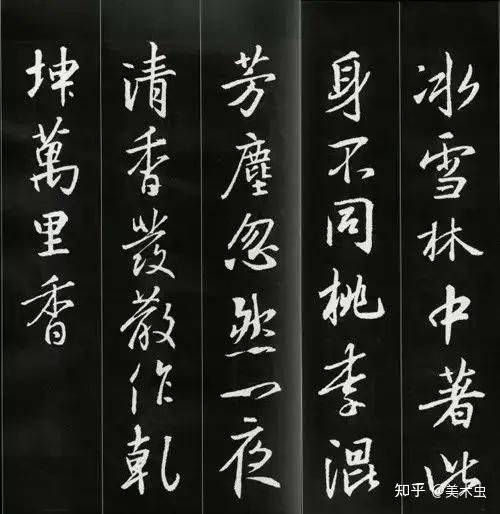 冰雪林中著此
身不同桃李混
芳塵忽然一夜
清香發散作乾
坤萬里香
知乎 @美术虫